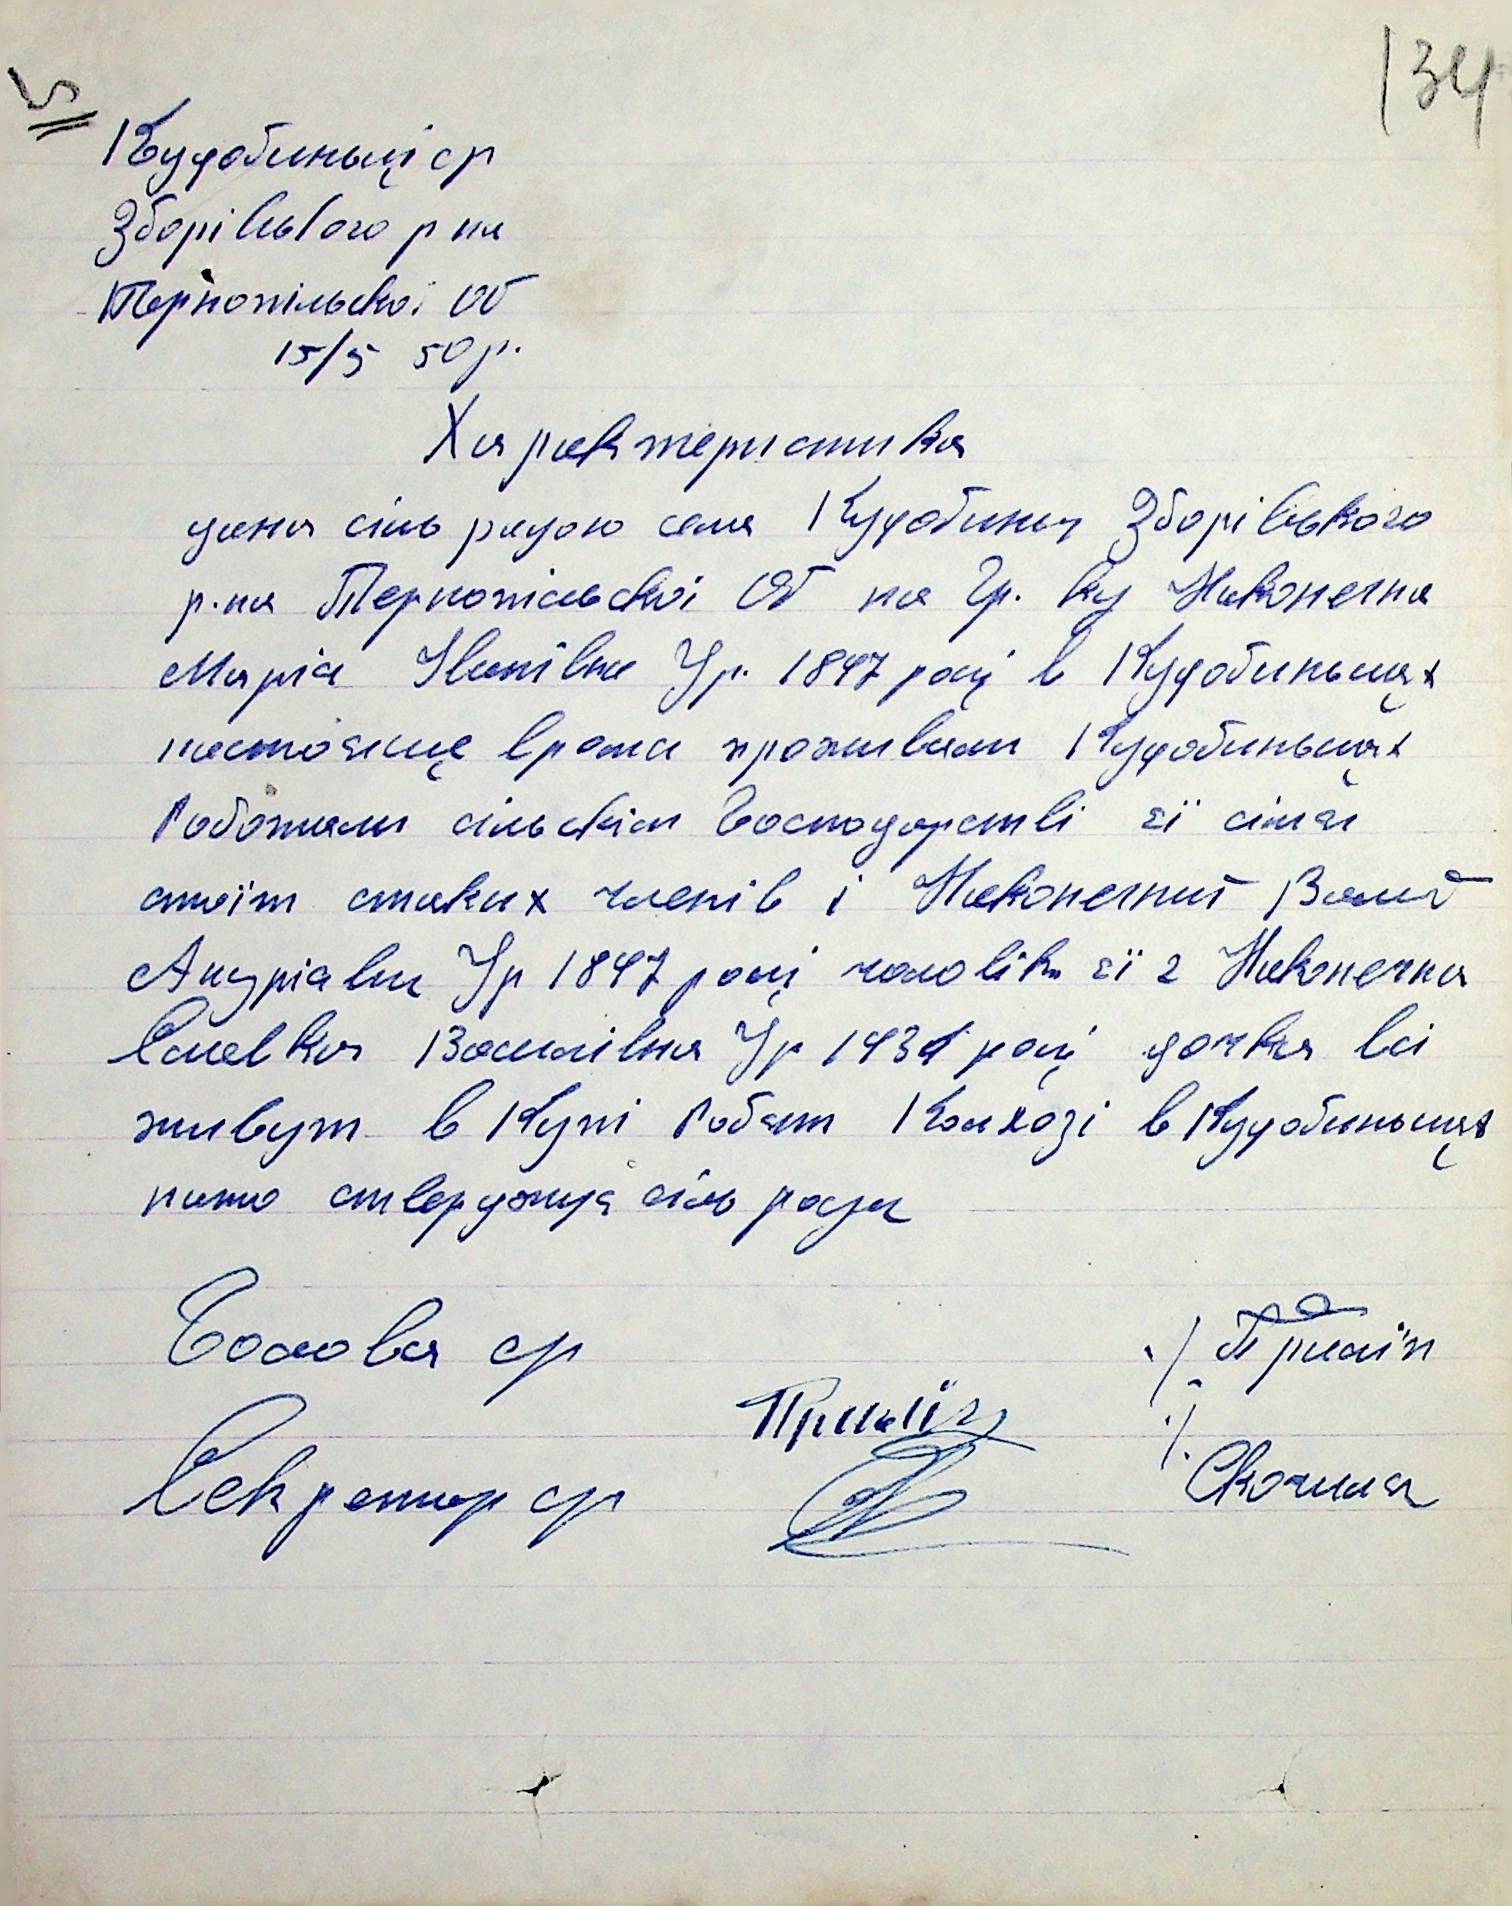 134
5
Кудобиньці ср
Зборівського р на
Тернопільскої Об
15/5 50 р.
Характеристика
дана сіль радою села Кудобиньц Зборівського
р.на Тернопільскої Об на Гр. ку Наконечна
Марія Іванівна Ур. 1897 році в Кудобиньцях
настояще время проживали Кудобиньцях
Роботали сільскім Господарстві її сімя
стоїт стаких членів 1 Наконечний
Андріавич Ур 1897 році чоловік її 2 Наконечна
Славка Василівна Ур 1931 році дочка всі
живут в Купі Робят Колхозі в Кудобиньцях
стверджує сіль рада
Голова ср
Приліп
Секретар ср